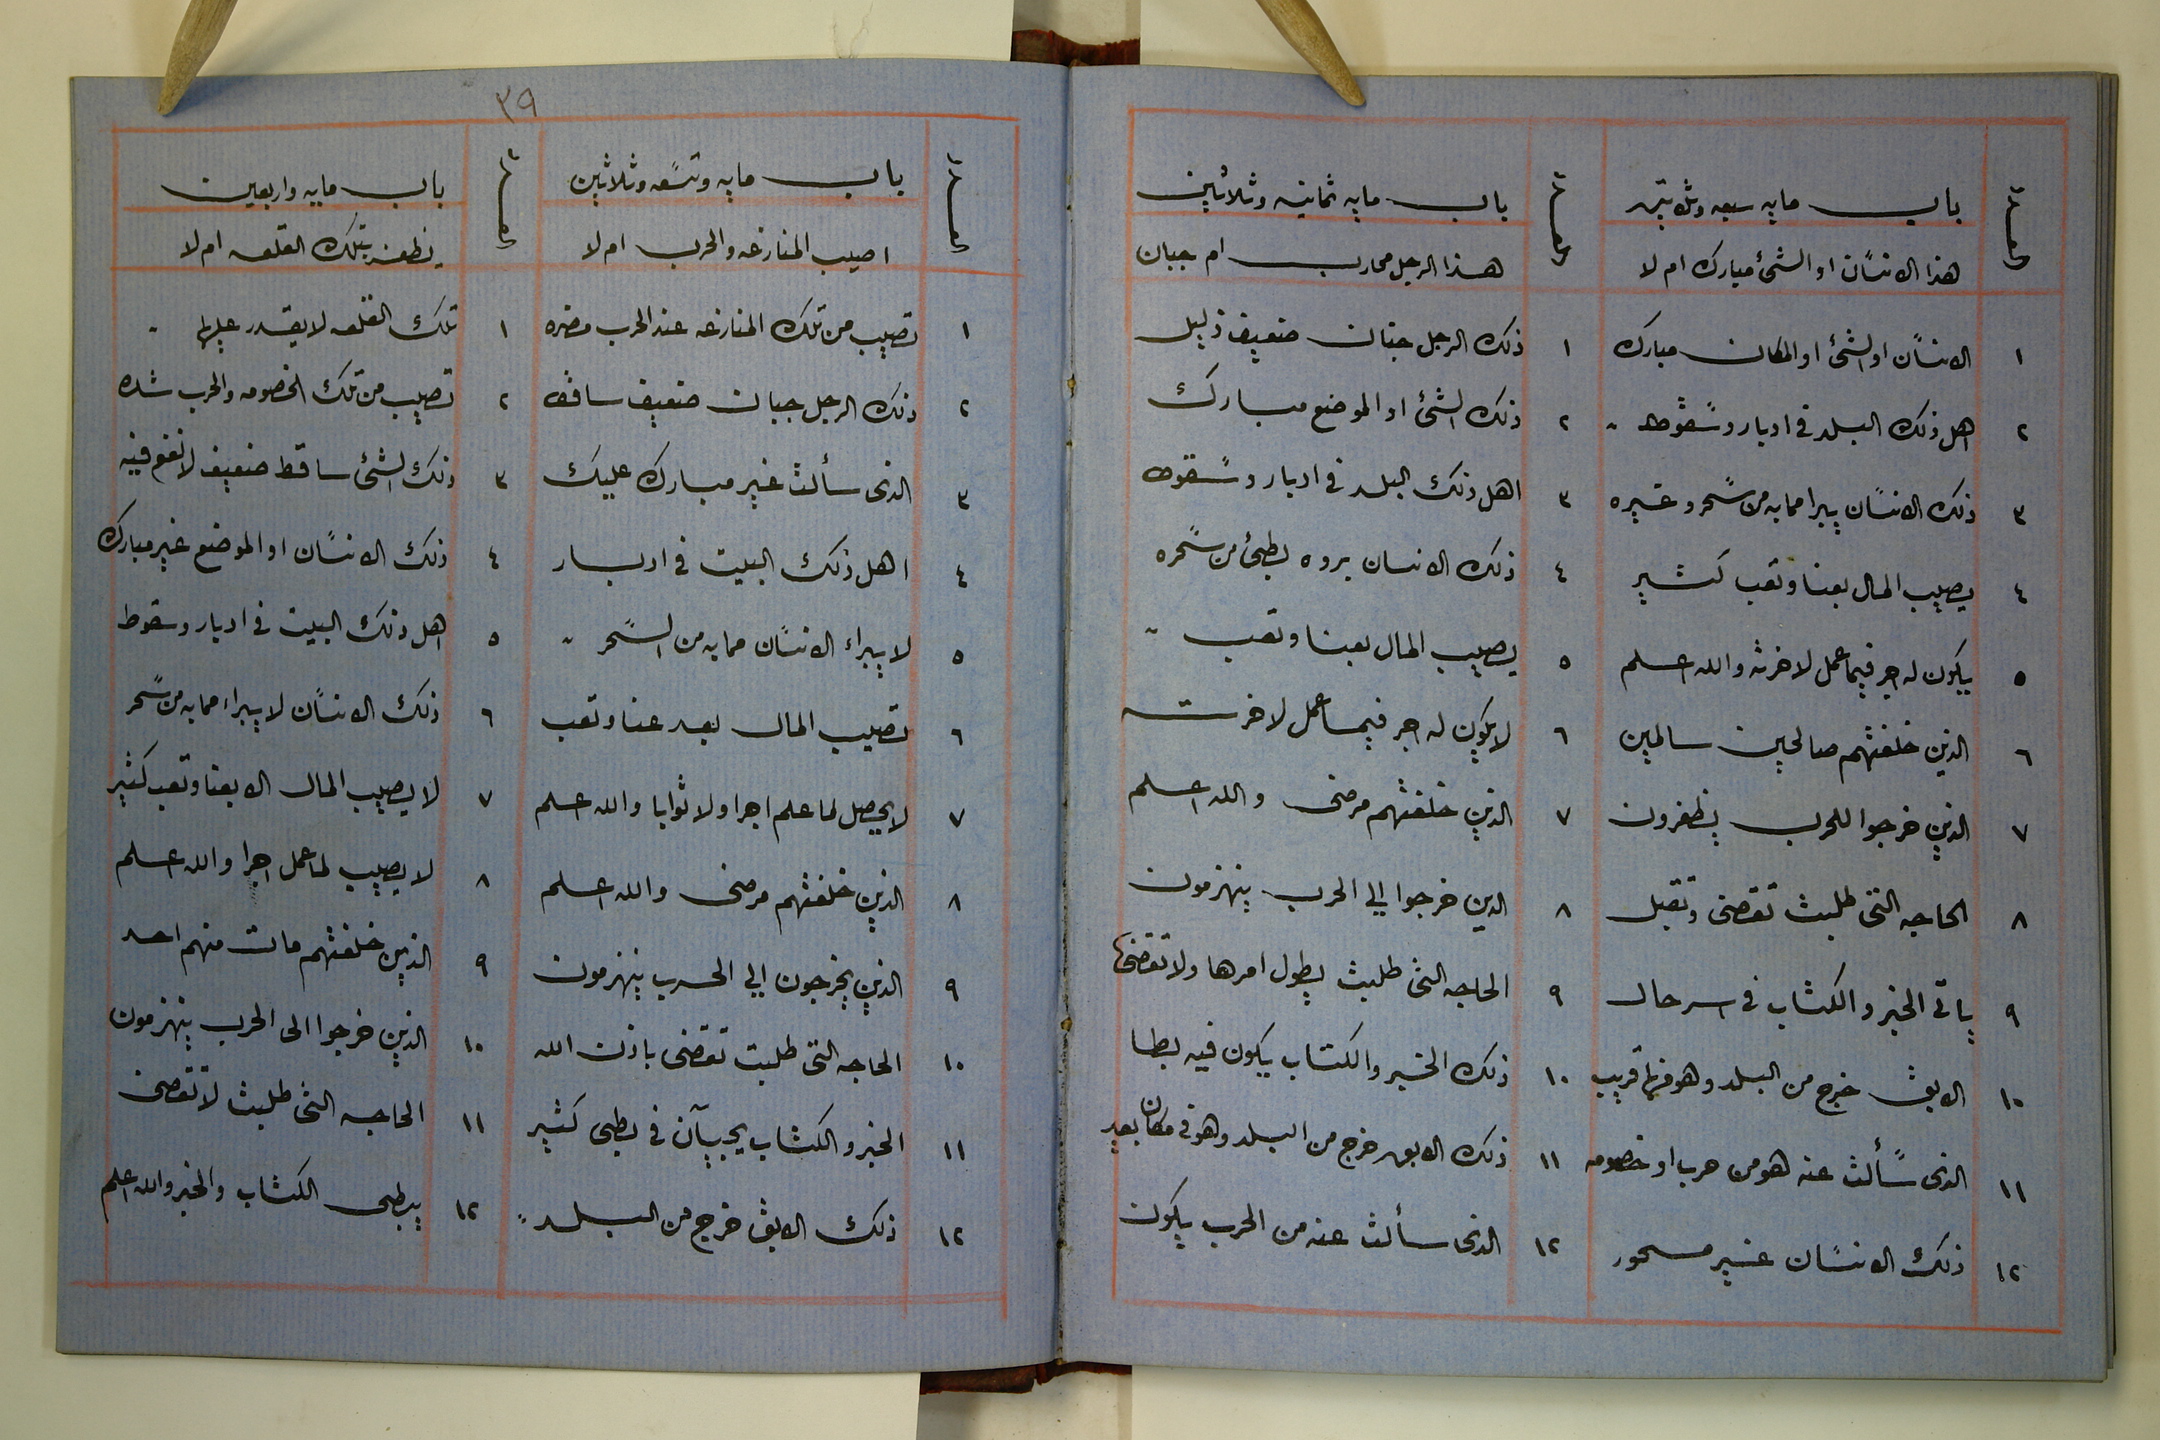 العدد
باب مايه سبعه وثلاثين
هذا الانسان او الشئ مبارك ام لا
١ الانسان او الشئ او المكان مبارك
٢ اهل ذلك البلد في ادبار وسقوط
٣ ذلك الانسان يبرا مما به من سحر وغيره
٤ يصيب المال بعنا وتعب كثير
٥ يكون له اجر فيما عمل لاخرته والله اعلم
٦ الذين خلفتهم صالحين سالمين
٧ الذين خرجوا للحرب يظفرون
٨ الحاجه التى طلبت تقضى وتقبل
٩ ياتي الخبر والكتاب في اسر حال
١٠ الابق خرج من البلد وهو منها قريب
١١ الذى سألت عنه هو من حرب او خصومه
١٢ ذلك الانسان غير مسحور
العدد
باب مايه ثمانيه وثلاثين
هذا الرجل محارب ام جبان
١ ذلك الرجل جبان ضعيف ذليل
٢ ذلك الشئ او الموضع مبارك
٣ اهل ذلك البلد في ادبار وسقوط
٤ ذلك الانسان بروه بطئ من سحره
٥ يصيب المال بعنا وتعب
٦ لا يكون له اجر فيما عمل لاخرته
٧ الذين خلفتهم مرضى والله اعلم
٨ الدين خرجوا الي الحرب ينهزمون
٩ الحاجه التى طلبت يطول امرها ولا تقضى
١٠ ذلك الخبر والكتاب يكون فيه بطا
١١ ذلك الابق خرج من البلد وهو في مكان بعيد
١٢ الذى سألت عنه من الحرب يكون
٣٩
العدد
باب مايه وتسعه وثلاثين
اصيب المنازعه والحرب ام لا
١ تصيب من تلك المنازعه عند الحرب مضره
٢ ذلك الرجل جبان ضعيف ساقط
٣ الذى سألت غير مبارك عليك
٤ اهل ذلك البيت في ادبار
٥ لا يبراء الانسان مما به من السحر
٦ تصيب المال بعد عنا وتعب
٧ لا يحصل لما علم اجرا ولا ثوابا والله اعلم
٨ الذين خلفتهم مرضى والله اعلم
٩ الذين يخرجون الي الحرب ينهزمون
١٠ الحاجه التى طلبت تقضى باذن الله
١١ الخبر والكتاب يجيبآن في بطى كثير
١٢ ذلك الابق خرج من البلد
العدد
باب مايه واربعين
يظفر بتلك القلعه ام لا
١ تلك القلعه لا يقدر عليها
٢ تصيب من تلك الخصومه والحرب شده
٣ ذلك الشئ ساقط ضعيف لا نفع فيه
٤ ذلك الانسان او الموضع غير مبارك
٥ اهل ذلك البيت في ادبار وسقوط
٦ ذلك الانسان لا يبراء مما به من سحر
٧ لا يصيب المال الا بعنا وتعب كثير
٨ لا يصيب لما عمل اجرا والله اعلم
٩ الذين خلفتهم مات منهم احد
١٠ الذين خرجوا الى الحرب ينهزمون
١١ الحاجه التى طلبت لا تقضى
١٢ يبطى الكتاب والخبر والله اعلم